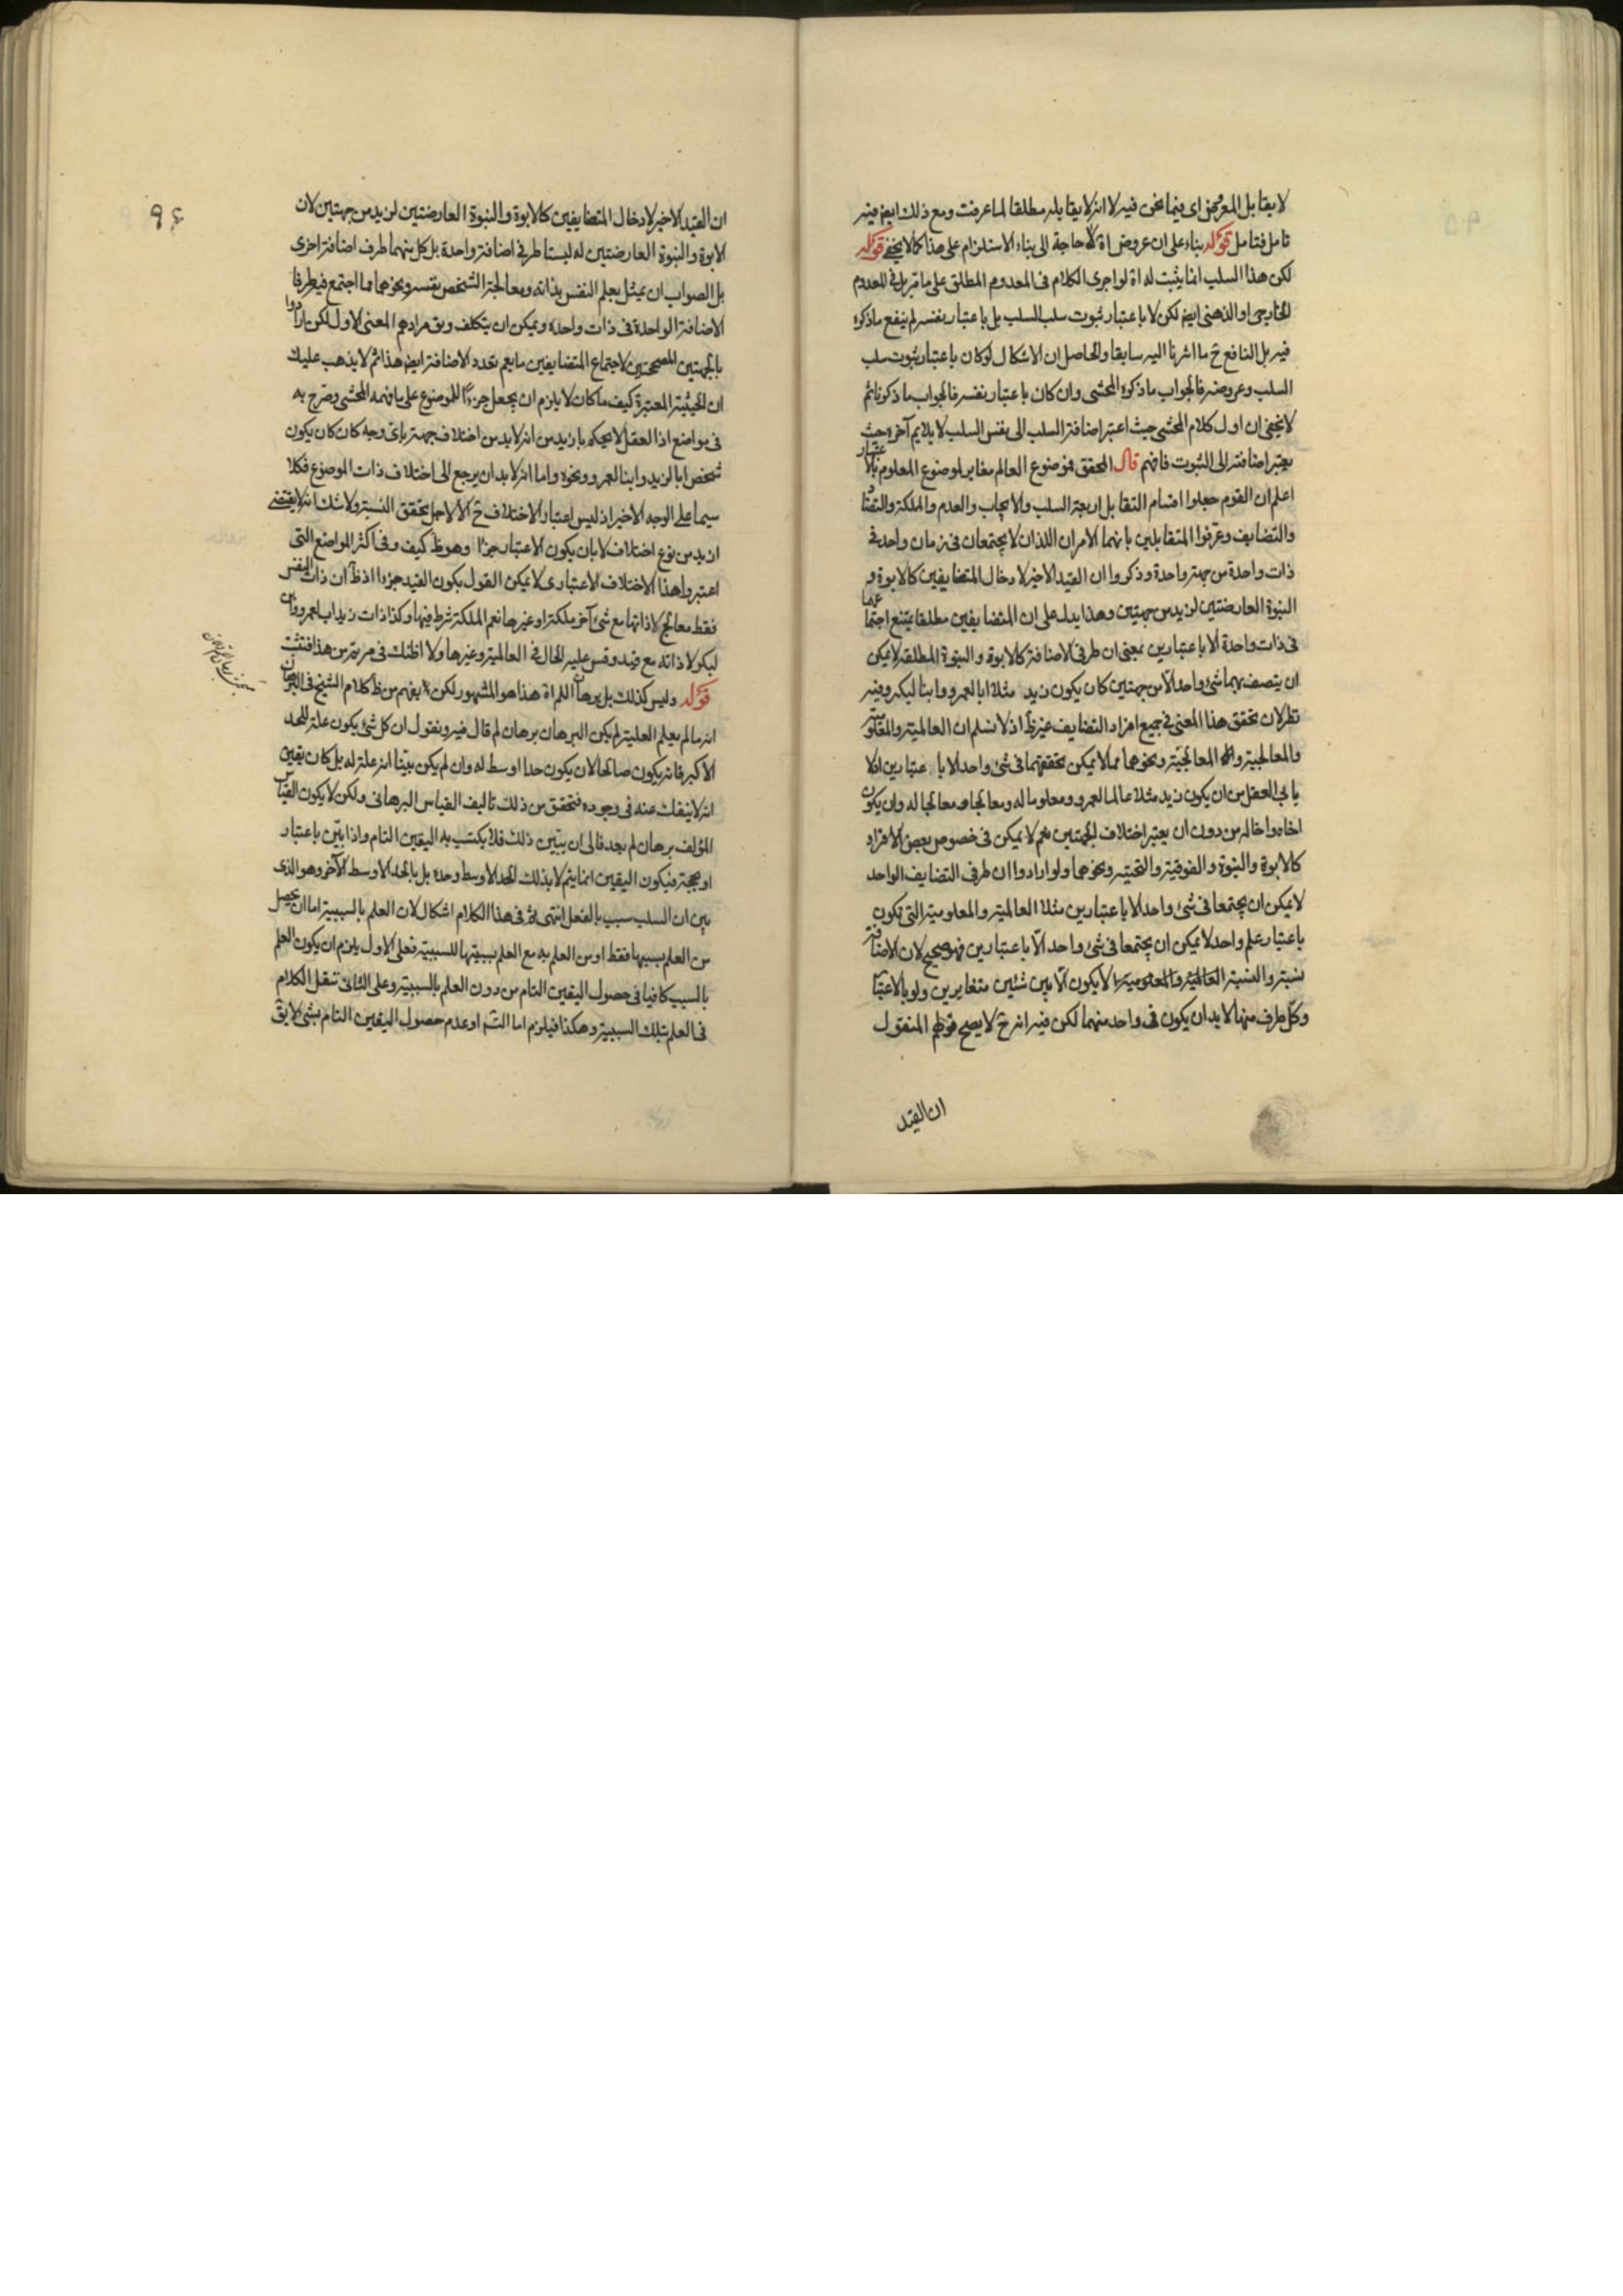 لا يقابل المعروض اى فيما نحن فيه لا انه لا يقابله مطلقا لما عرفت ومع ذلك ايض فيه
تامل فتامل قوله بناء على ان عروض اه لا حاجة الى بناء الاستلزام على هذا كما لا يخفى قوله
لكن هذا السلب انما يثبت له اه لو اجرى الكلام فى المعدوم المطلق على ما قرر بل فى المعدوم
الخارجى او الذهنى ايض لكن لا باعتبار ثبوت سلب السلب بل باعتبار نفسه لم ينفع ما ذكره
فيه بل النافع ح ما اشرنا اليه سابقا والحاصل ان الاشكال لو كان باعتبار ثبوت سلب
السلب وعروضه فالجواب ما ذكره المحشى وان كان باعتبار نفسه فالجواب ما ذكرنا ثم
لا يخفى ان اول كلام المحشى حيث اعتبر اضافة السلب الى نفس السلب لا يلايم آخره حيث
يعتبر اضافته الى الثبوت فافهم قال المحقق موضوع العالم مغاير لموضوع المعلوم بالاعتبار
اعلم ان القوم جعلوا اقسام التقابل اربعة السلب والايجاب والعدم والملكة والتضاد
والتضايف وعرفوا المتقابلين بانهما الامران اللذان لا يجتمعان فى زمان واحد فى
ذات واحدة من جهة واحدة وذكروا ان القيد الاخير لادخال المتضايفين كالابوة و
البنوة العارضتين لزيد من جهتين وهذا يدل على ان المتضايفين مطلقا يمتنع اجتماعهما
فى ذات واحدة الا باعتبارين بمعنى ان طرفى الاضافة كالابوة والبنوة المطلقة لا يمكن
ان يتصف بهما شئ واحد الا من جهتين كان يكون زيد مثلا ابا لعمرو وابنا لبكر وفيه
نظر لان تحقق هذا المعنى فى جميع افراد التضايف غير ظ اذ لا نسلم ان العالمية والمعلومية
والمعالجية والمعالجية ونحوهما مما لا يمكن تحققهما فى شئ واحد الا باعتبارين اذ لا
يابى العقل من ان يكون زيد مثلا عالما لعمرو ومعلوما له ومعالجا ومعالجا له وان يكون
اخاه واخا له من دون ان يعتبر اختلاف الجهتين نعم لا يمكن فى خصوص بعض الافراد
كالابوة والبنوة والفوقية والتحتية ونحوهما ولو ارادوا ان طرفى التضايف الواحد
لا يمكن ان يجتمعا فى شئ واحد الا باعتبارين مثلا العالمية والمعلومية التى تكون
باعتبار علم واحد لا يمكن ان يجتمعا فى شئ واحد الا باعتبارين فهو صحيح لان الاضافة
نسبة والنسبة لا يكون الا بين شئين متغايرين ولو بالاعتبار
وكل طرف منها لا بد ان يكون فى واحد منهما لكن فيه انه ح لا يصح قولهم المنقول
ان القيد
۹۶
ان القيد الاخير لادخال المتضايفين كالابوة والبنوة العارضتين لزيد من جهتين لان
الابوة والبنوة العارضتين له ليستا طرفى اضافة واحدة بل كل منهما طرف اضافة اخرى
بل الصواب ان يمثل بعلم النفس بذاته ومعالجة الشخص نفسه ونحوهما مما اجتمع فيه طرفا
الاضافة الواحدة فى ذات واحدة ويمكن ان يتكلف ويق مرادهم المعنى الاول لكن ارادوا
بالجهتين المصححتين لاجتماع المتضايفين ما يعم تعدد الاضافة ايض هذا ثم لا يذهب عليك
ان الحيثية المعتبرة كيف ما كان لا يلزم ان يجعل جزءا للموضوع على ما فهمه المحشى وصرح به
فى مواضع اذ العقل لا يحكم بازيد من انه لا بد من اختلاف جهة باى وجه كان كان يكون
شخص ابا لزيد وابنا لعمرو ونحوه واما انه لا بد ان يرجع الى اختلاف ذات الموضوع فكلا
سيما على الوجه الاخير اذ ليس اعتبار الاختلاف ح الا لاجل تحقق النسبة ولا شك انه لا يقتضى
ازيد من نوع اختلاف لا بان يكون الاعتبار جزءا وهو ظ كيف وفى اكثر المواضع التى
اعتبروا هذا الاختلاف الاعتبارى لا يمكن القول بكون القيد جزءا اذ ظ ان ذات النفس
فقط معالج لا ذاتها مع شئ آخر ملكة او غيرها نعم الملكة شرط فيها وكذا ذات زيد اب لعمرو وابن
لبكر لا ذاته مع قيد وقس عليه الحال فى العالمية وغيرها ولا اظنك فى مرية من هذا فتثبت
قوله وليس كذلك بل برهان اللم اه هذا هو المشهور لكن يفهم من ظ كلام الشيخ فى البرهان
انه ما لم يعلم العلية لم يكن البرهان برهان لم قال فيه ونقول ان كل شئ يكون علة للحد
الاكبر فانه يكون صالحا لان يكون حدا اوسط له وان لم يكن بينا انه علة له بل كان يقين
انه لا ينفك عنه فى وجوده فتحقق من ذلك تاليف القياس البرهانى ولكن لا يكون القياس
المؤلف برهان لم بعد فالى ان يبين ذلك فلا يكتسب به اليقين التام واذا بين باعتبار
او بحجة فيكون اليقين انما يتم لا بذلك الحد الاوسط وحده بل بالحد الاوسط الآخر وهو الذى
بين ان السلب سبب بالفعل انتهى وفى هذا الكلام اشكال لان العلم بالسببية اما ان يحصل
من العلم بسببها فقط او من العلم به مع العلم بسببيتها للسببية فعلى الاول يلزم ان يكون العلم
بالسبب كافيا فى حصول اليقين التام من دون العلم بالسببية وعلى الثانى ننقل الكلام
فى العلم بتلك السببية وهكذا فيلزم اما التسم او عدم حصول اليقين التام بشئ لا يق